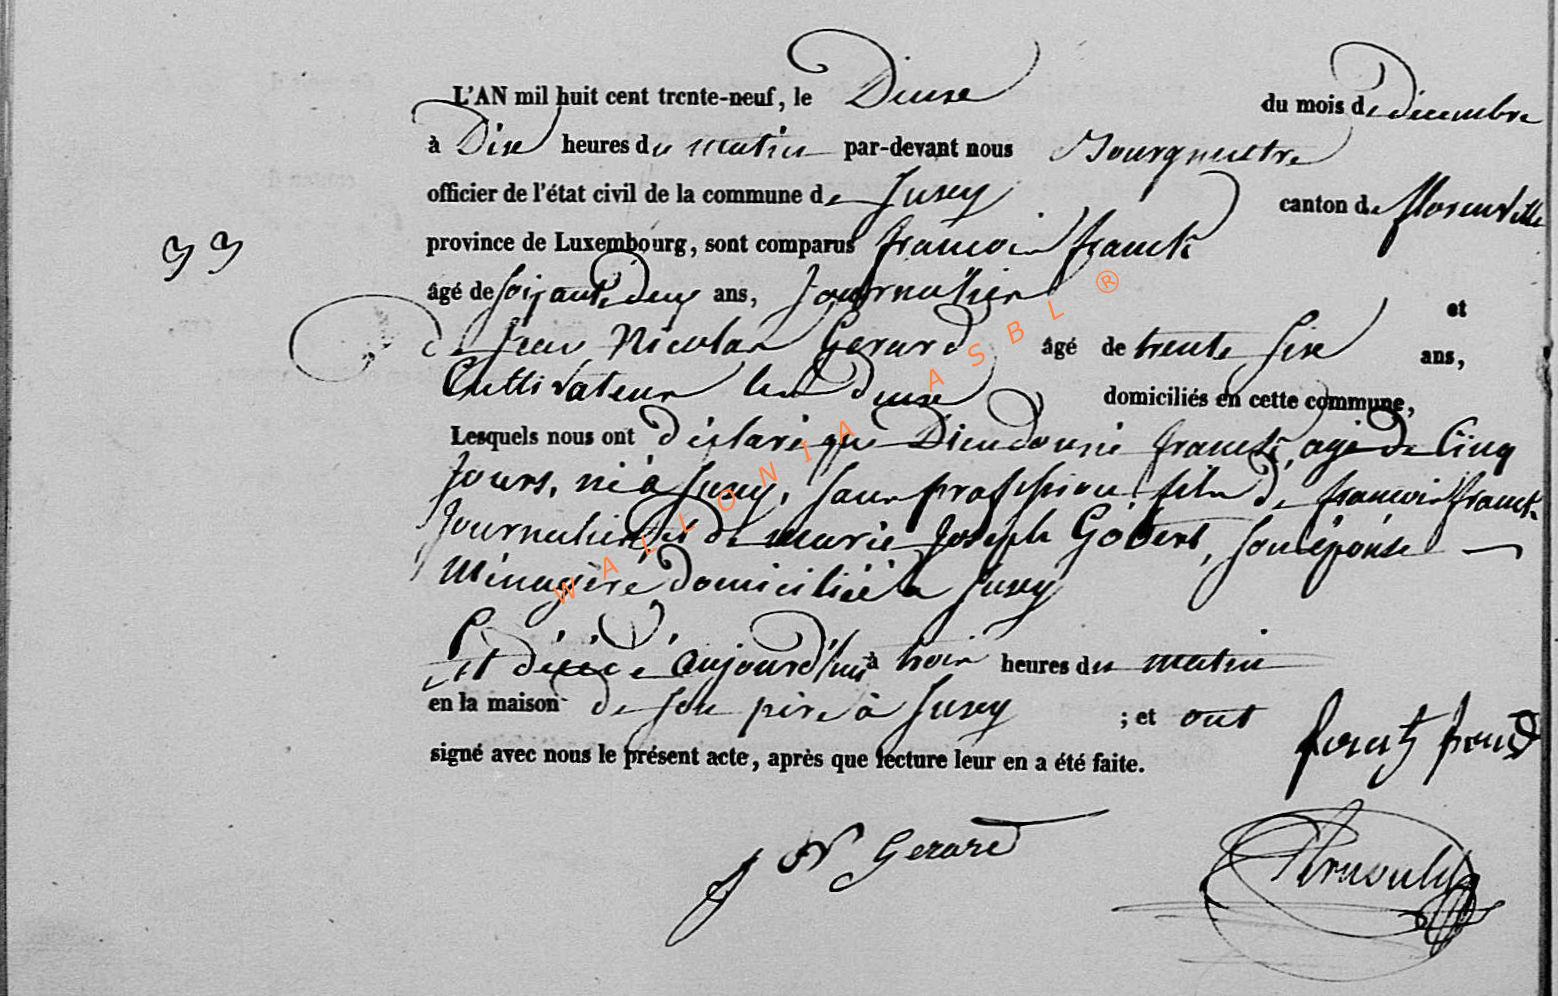 L'AN mil huit cent trente-neuf, le Deuxe du mois de décembre
à Dixe heures du matin par-devant nous Bourgmestre
officier de l'état civil de la commune de Suxy canton de florenville
33
province de Luxembourg, sont comparus françois franck
âgé de soixante deux ans, Journalier et
de Jean Nicolas Gerard âgé de trente six ans,
Cultivateur les deuxe domiciliés en cette commune,
Lesquels nous ont déclaré que Dieudonné franck, agé de Cinq
Jours, né à Suxy, sans profession fils de françois franck
Journalier et de marie Joseph Gobert, son épouse
Ménagère domiciliée à Suxy
Est décédé aujourd'hui à trois heures du matin
en la maison de son père à Suxy ; et ont
signé avec nous le présent acte, après que lecture leur en a été faite.
J N Gerard
WALLONIA ASBL ®